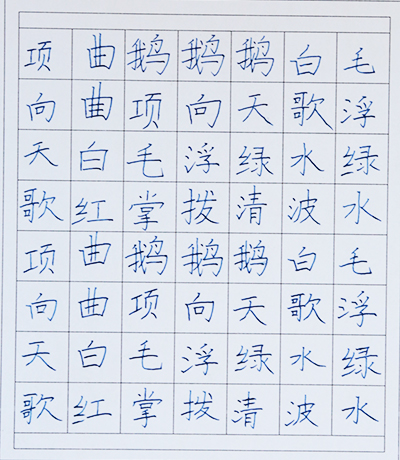 项曲鹅鹅鹅白毛
向曲项向天歌浮
天白毛浮绿水绿
歌红掌拨清波水
项曲鹅鹅鹅白毛
向曲项向天歌浮
天白毛浮绿水绿
歌红掌拨清波水